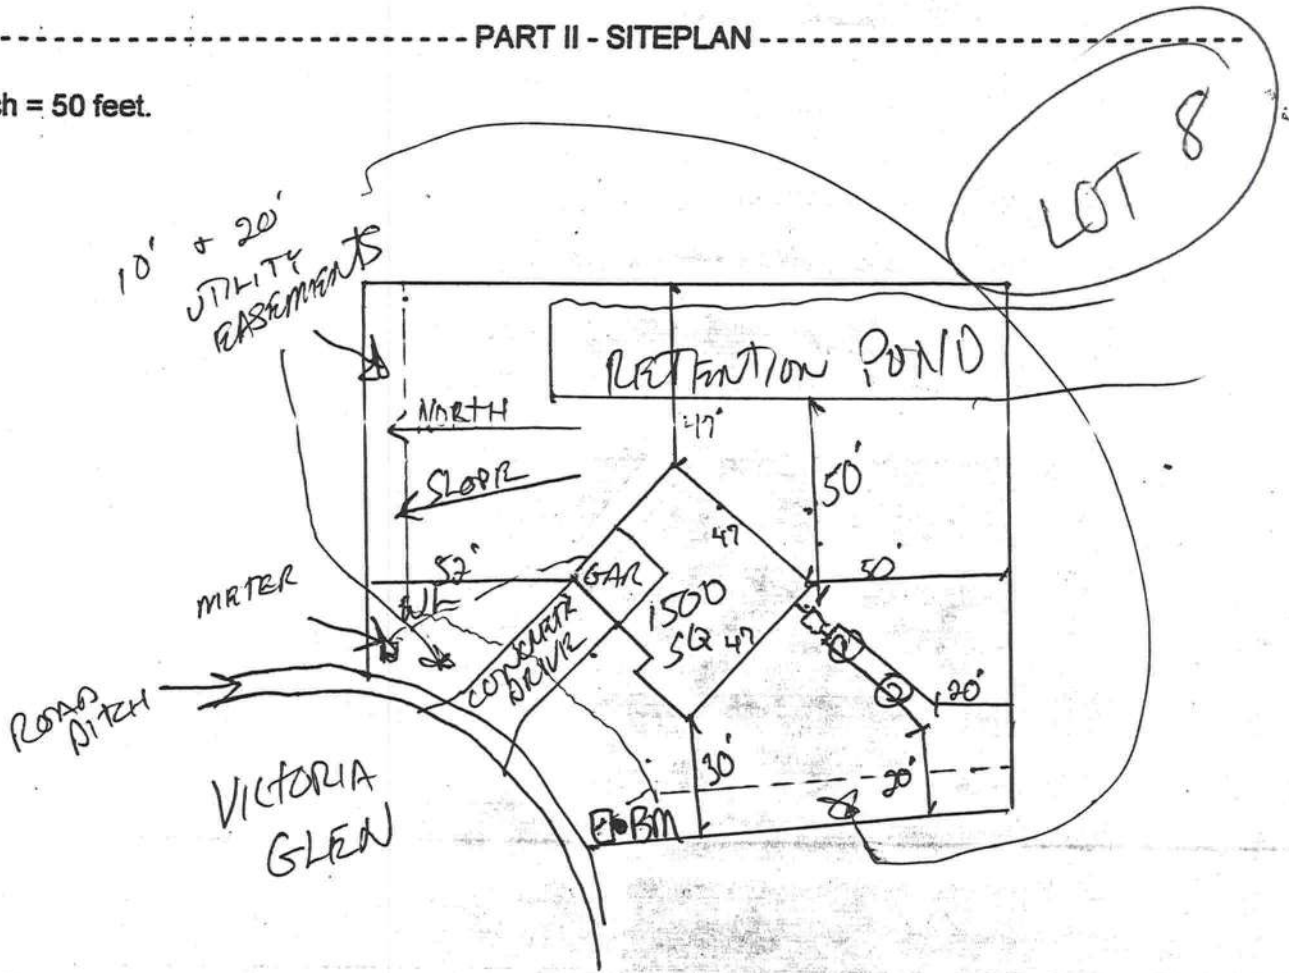 PART II - SITEPLAN
ch = 50 feet.
LOT 8
10' + 20'
UTILITY
EASEMENTS
RETENTION POND
NORTH
47'
SLOPE
50'
47
52'
50'
GAR
METER
WL
1500
SQ 47
CONCRETE
DRIVE
20'
ROAD
DITCH
30'
20'
VICTORIA
GLEN
BM